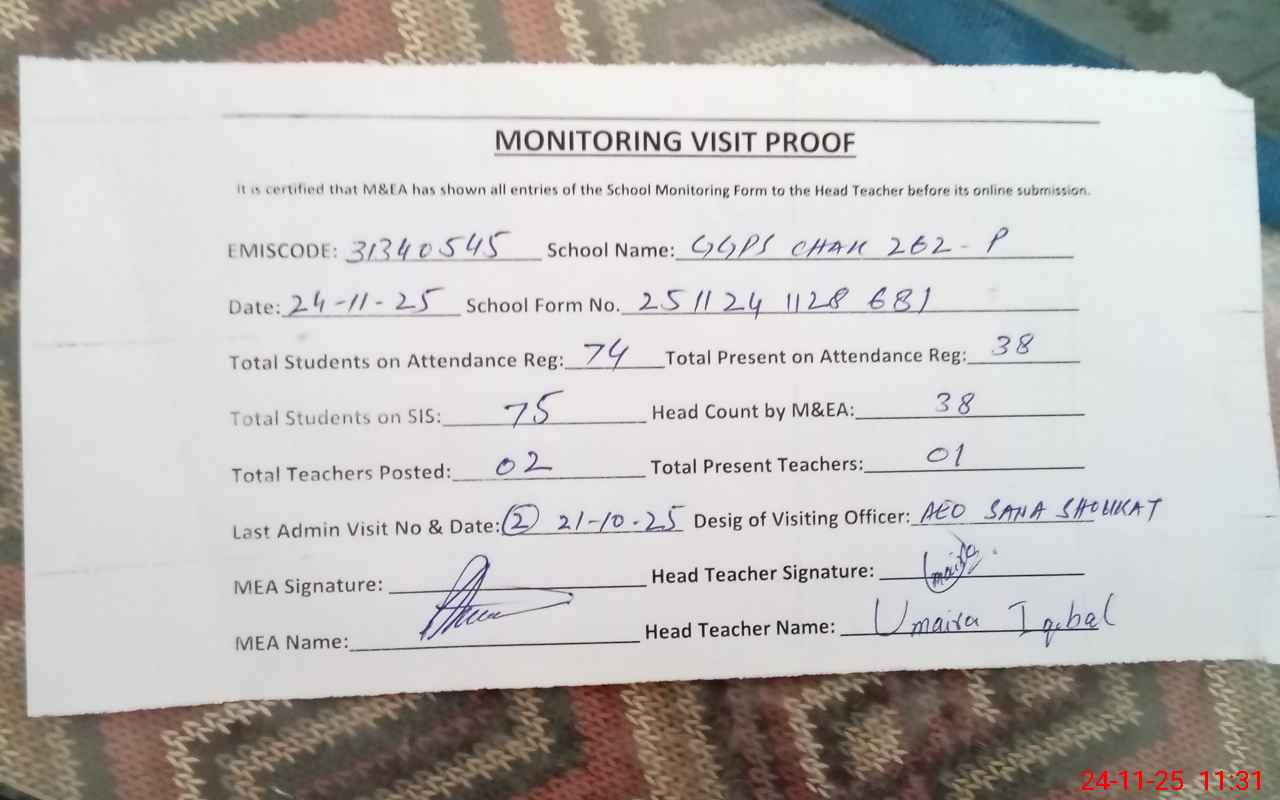 MONITORING VISIT PROOF
It is certified that M&EA has shown all entries of the School Monitoring Form to the Head Teacher before its online submission.
EMISCODE: 31340545 School Name: GGPS CHAK 262-P
Date: 24-11-25 School Form No. 251124 1128 681
Total Students on Attendance Reg: 74 Total Present on Attendance Reg: 38
Total Students on SIS: 75 Head Count by M&EA: 38
Total Teachers Posted: 02 Total Present Teachers: 01
Last Admin Visit No & Date: (2) 21-10-25 Desig of Visiting Officer: AEO SANA SHOUKAT
MEA Signature: Head Teacher Signature: Umaira
MEA Name: Head Teacher Name: Umaira Iqbal
24-11-25 11:31